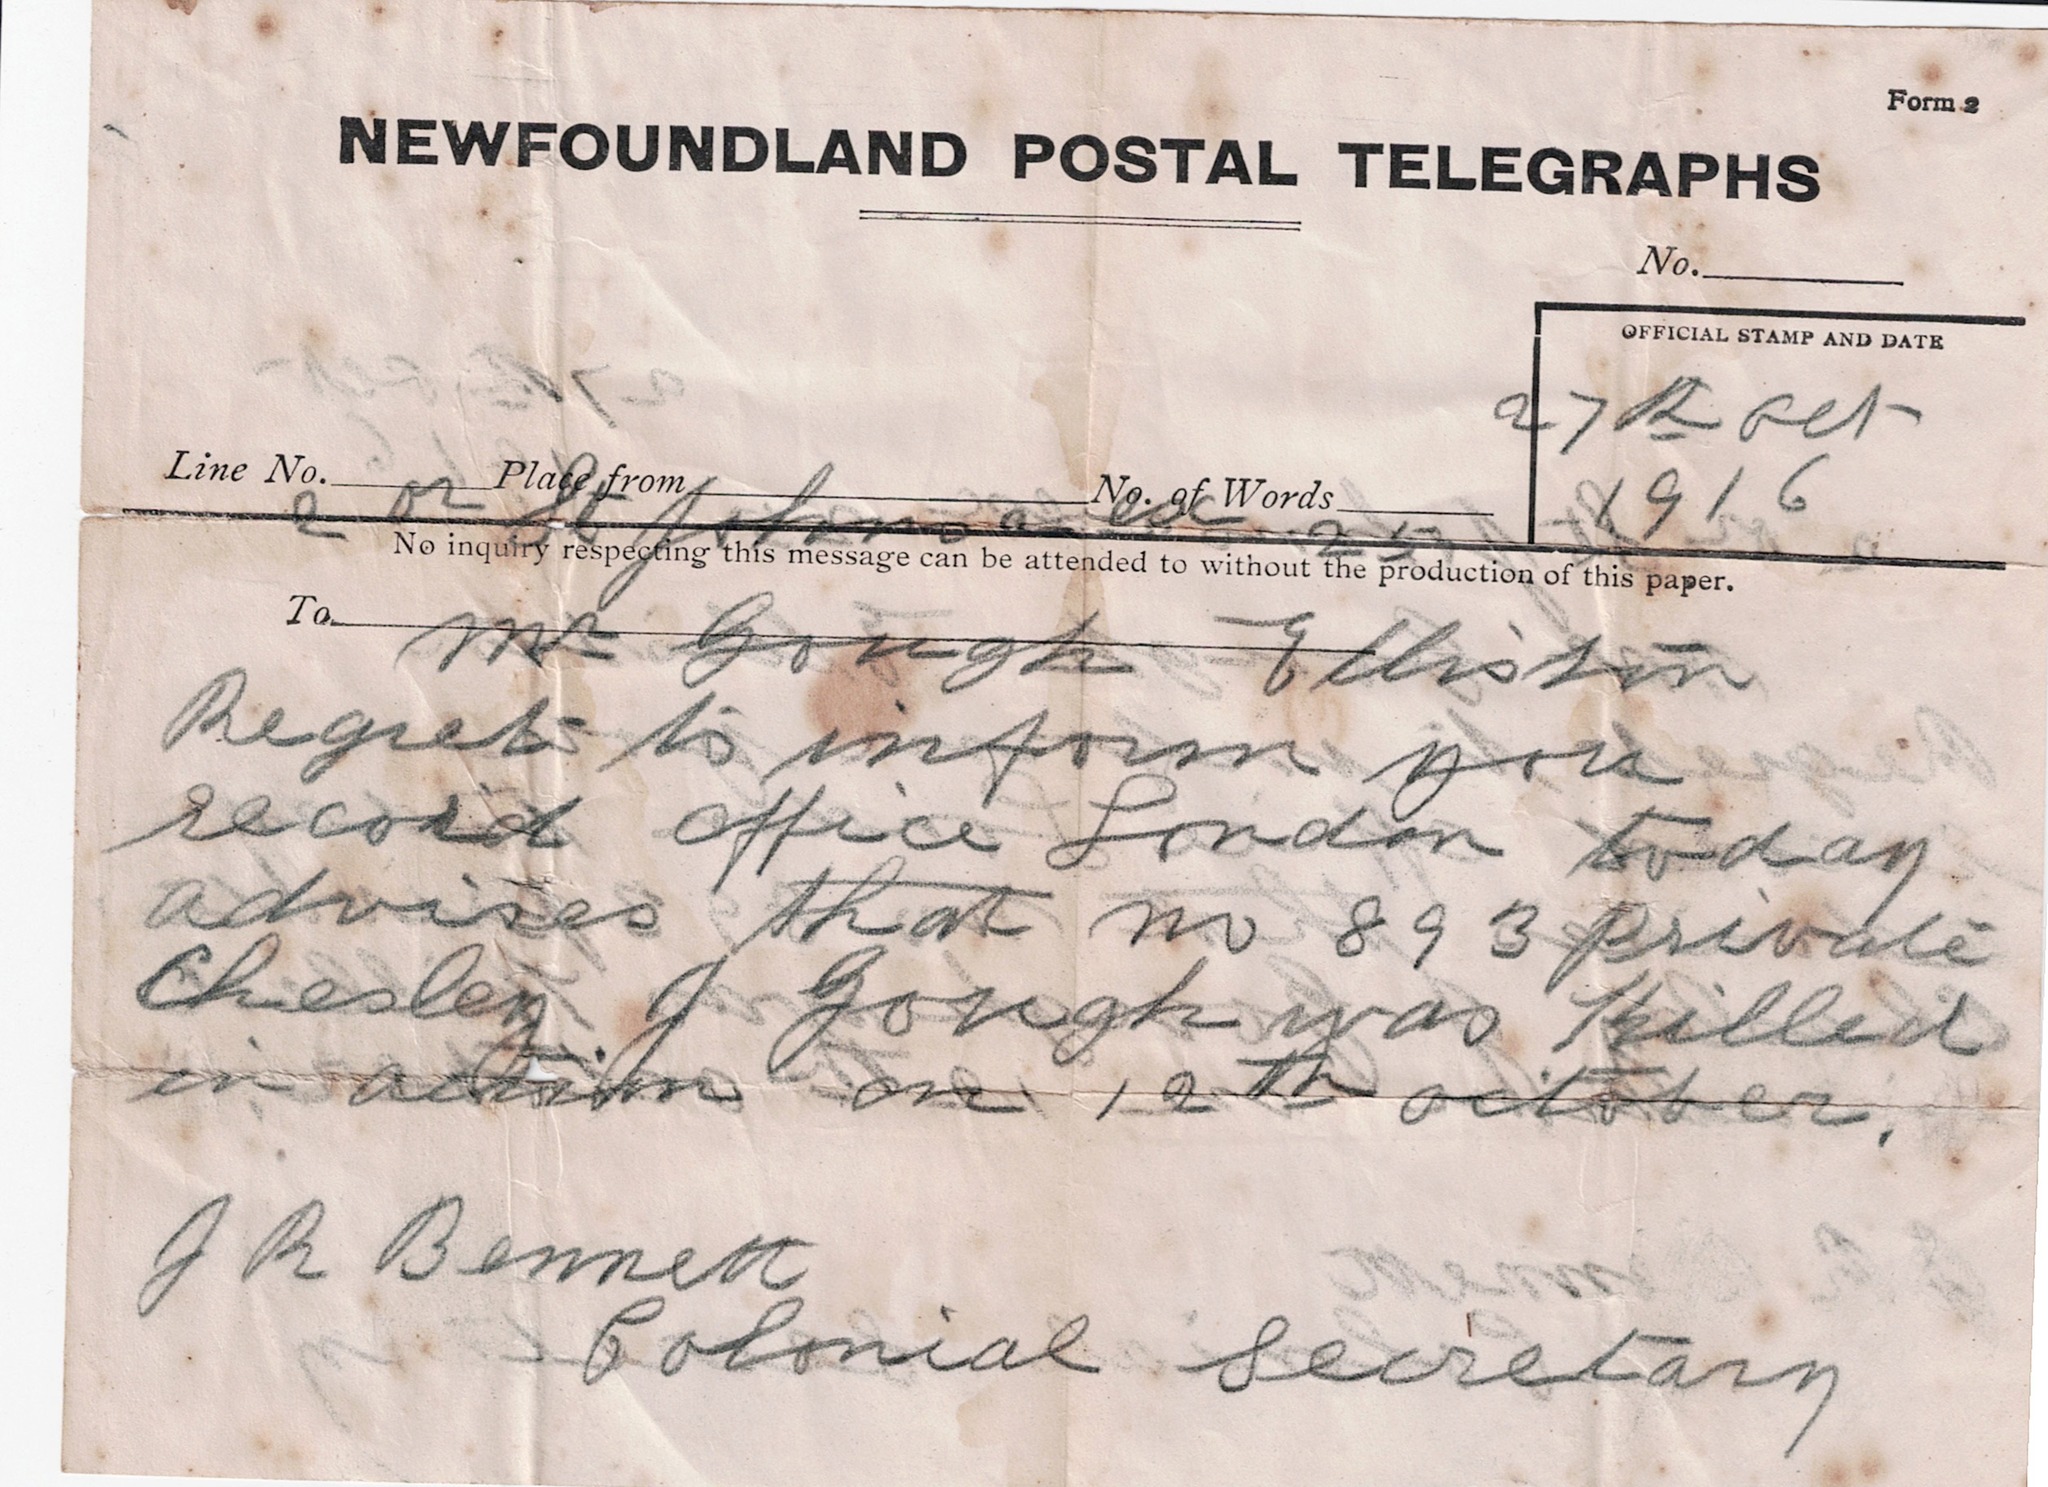 Form 2
NEWFOUNDLAND POSTAL TELEGRAPHS
No.
OFFICIAL STAMP AND DATE
27th Oct
1916
Line No. Place from No. of Words
2 or St Johns 25
No inquiry respecting this message can be attended to without the production of this paper.
To Mr Gough Elliston
Regret to inform you
record office London today
advises that no 893 Private
Chesley J Gough was Killed
in action on 12th october.
J R Bennett
Colonial Secretary